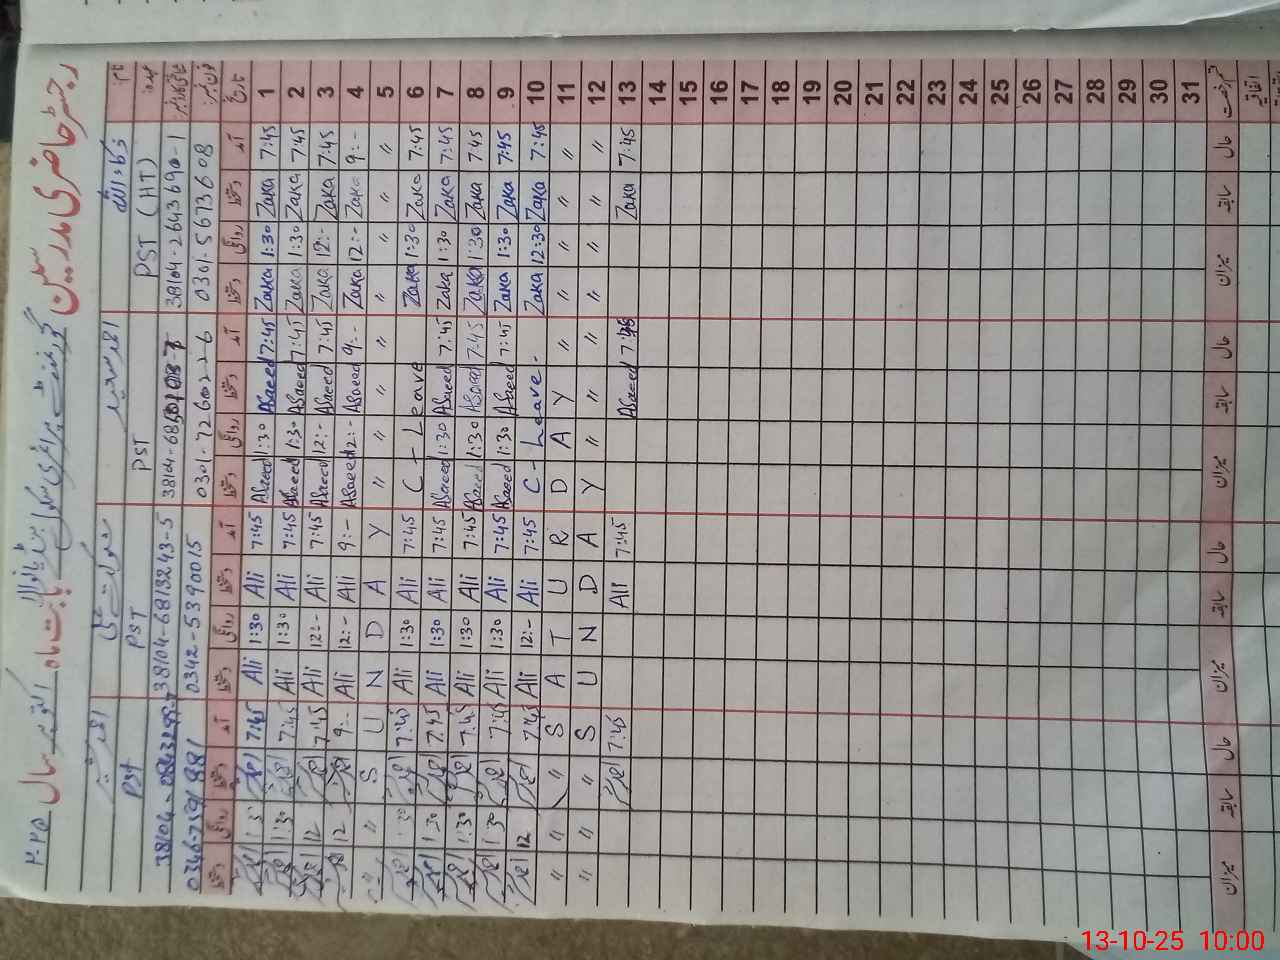 رجسٹر حاضری مدرسین گورنمنٹ پرائمری سکول بابت ماہ اکتوبر سال ۲۰۲۵
نام: ذکاء اللہ احمد سعید شوکت علی
عہدہ: PST (HT) PST PST PST
شناختی کارڈ نمبر: 38104-2643690-1 38104-6813243-5
فون نمبر: 0301-5673608 0301-7260226 0342-5390015
تاریخ آمد دستخط روانگی دستخط آمد دستخط روانگی دستخط آمد دستخط روانگی دستخط آمد دستخط روانگی دستخط
1 7:45 Zaka 1:30 Zaka 7:45 ASaeed 1:30 ASaeed 7:45 Ali 1:30 Ali 7:45
2 7:45 Zaka 1:30 Zaka 7:45 ASaeed 1:30 ASaeed 7:45 Ali 1:30 Ali 7:45 1:30
3 7:45 Zaka 12:- Zaka 7:45 ASaeed 12:- ASaeed 7:45 Ali 12:- Ali 7:45 12
4 9:- Zaka 12:- Zaka 9:- ASaeed 12:- ASaeed 9:- Ali 12:- Ali 9:- 12
5 〃 〃 〃 〃 〃 〃 〃 〃 Y A D N U S 〃 〃
6 7:45 Zaka 1:30 Zaka C - Leave 7:45 Ali 1:30 Ali 7:45 1:30
7 7:45 Zaka 1:30 Zaka 7:45 ASaeed 1:30 ASaeed 7:45 Ali 1:30 Ali 7:45 1:30
8 7:45 Zaka 1:30 Zaka 7:45 ASaeed 1:30 ASaeed 7:45 Ali 1:30 Ali 7:45 1:30
9 7:45 Zaka 1:30 Zaka 7:45 ASaeed 1:30 ASaeed 7:45 Ali 1:30 Ali 7:45 1:30
10 7:45 Zaka 12:30 Zaka C - Leave - 7:45 Ali 12:- Ali 7:45 12
11 〃 〃 〃 〃 〃 Y A D R U T A S 〃 〃 〃
12 〃 〃 〃 〃 〃 〃 〃 Y A D N U S 〃 〃 〃
13 7:45 Zaka 7:45 ASaeed 7:45 Ali 7:45
14
15
16
17
18
19
20
21
22
23
24
25
26
27
28
29
30
31
قسم رخصت حال سابقہ میزان حال سابقہ میزان حال سابقہ میزان حال سابقہ میزان
اتفاقیہ
13-10-25 10:00